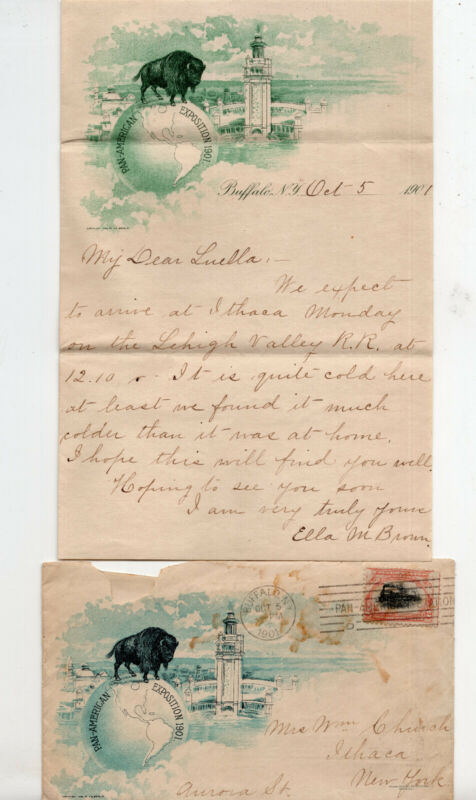 PAN-AMERICAN EXPOSITION 1901.
Buffalo, N.Y. Oct 5 1901
My Dear Luella, -
We expect
to arrive at Ithaca Monday
on the Lehigh Valley R.R. at
12.10 It is quite cold here
at least we found it much
colder than it was at home.
I hope this will find you well.
Hoping to see you soon
I am very truly yours
Ella M Brown.
BUFFALO, N.Y.
OCT 5
1901
PAN-AMERICAN EXPOSITION 1901.
PAN
Mrs Wm Church
Ithaca
New York.
Aurora St.